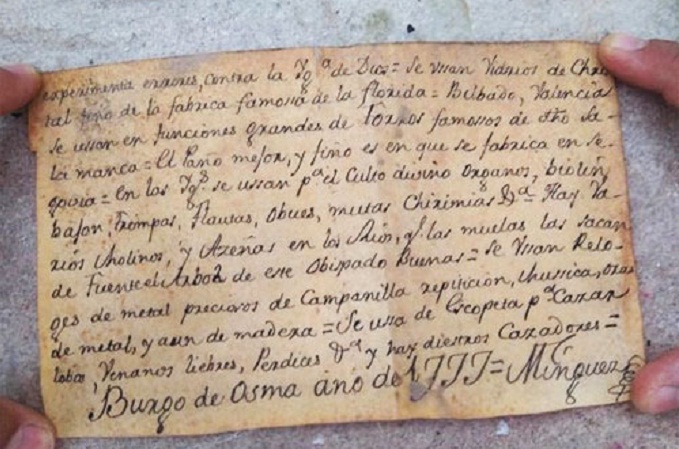 experimenta errores, contra la Ygª de Dios = Se Ussan Vidrios de Chris
tal fino de la fabrica famosa de la florida = Bilbado, Valencia
se ussan en funciones grandes de toros famosos de dho Sa-
la manca = El Pano mejor, y fino es en que se fabrica en Se-
govia = En las Ygˢ se ussan pª el Culto divino Organos, biolin,
bajon, trompas, flautas, obues, muttas Chirimias &ª = Hay Va-
rios Molinos, y Azeñas en los Rios, y las muelas las sacan
de Fuente el Arbol de este Obispado Buenas = Se Ussan Relo-
ges de metal preciosos de Campanilla repiticion, Mussica, otros
de metal, y aun de madera = Se ussa de Escopeta pª Cazar
lobos, Venanos liebres, Perdices &ª y hay diestros Cazadores =
Burgo de Osma año de 1777 = Minguez